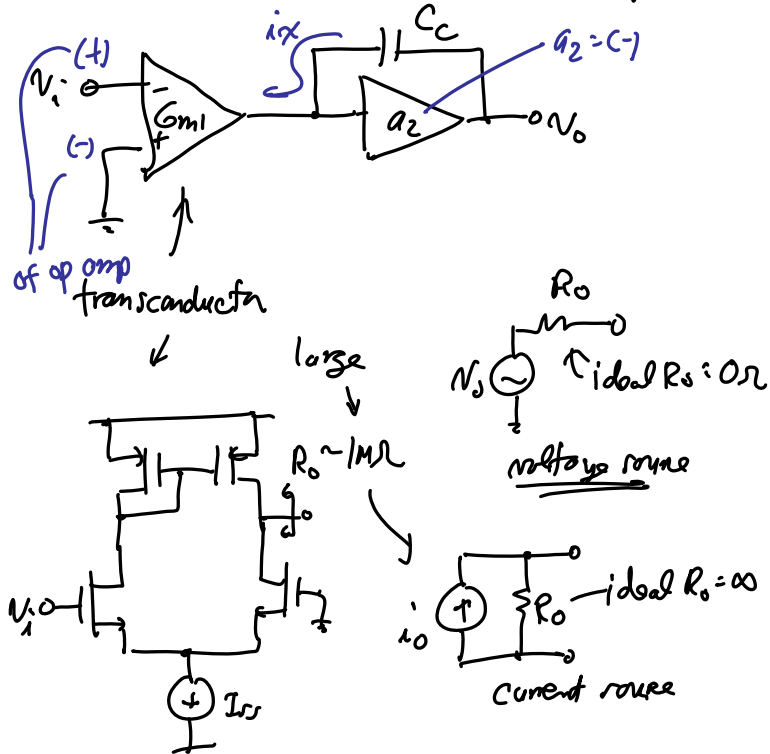 Cc
ix
a2 = (-)
(+)
Vi
-
Gm1
+
(-)
a2
Vo
of op amp
transconductor
large
Ro ~ 1MΩ
Ro
Vs
ideal Rs = 0Ω
voltage source
Vi
Iss
io
Ro
ideal Ro = ∞
current source